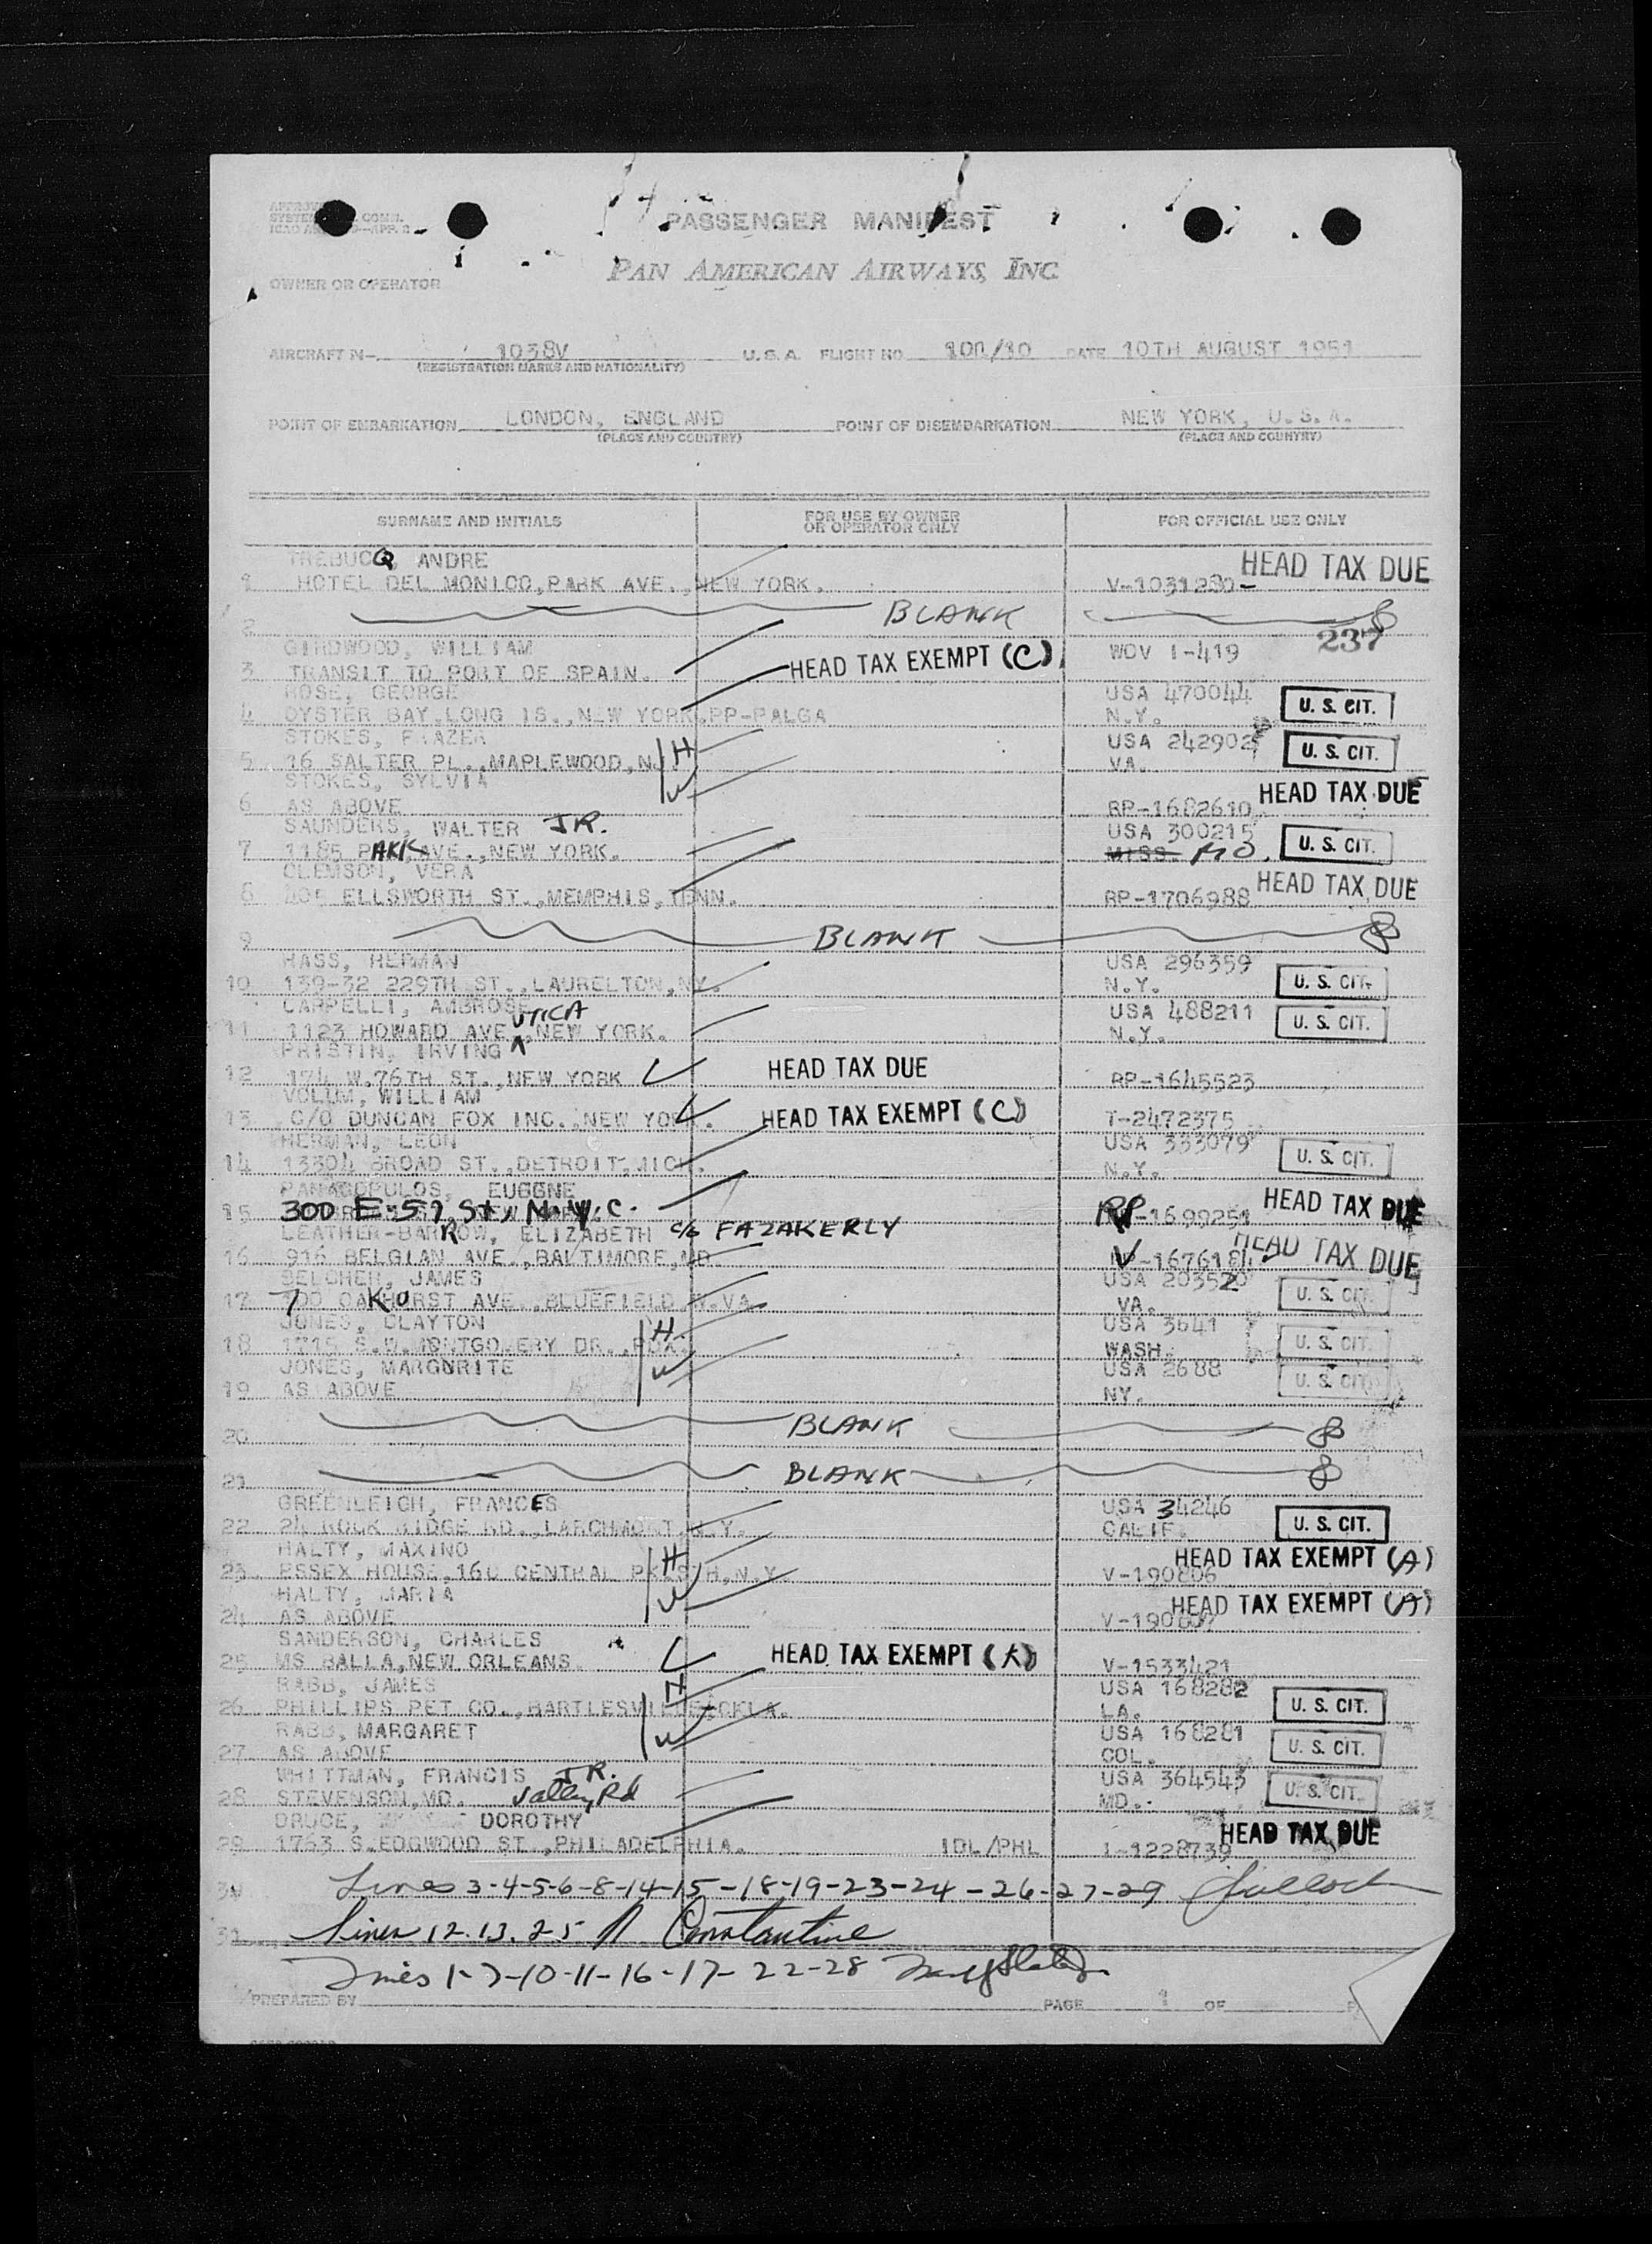 PASSENGER MANIFEST
PAN AMERICAN AIRWAYS, INC.
OWNER OR OPERATOR
AIRCRAFT N- 1038V U.S.A. FLIGHT NO. 100/10 DATE 10TH AUGUST 1951
(REGISTRATION MARKS AND NATIONALITY)
POINT OF EMBARKATION LONDON, ENGLAND POINT OF DISEMBARKATION NEW YORK, U.S.A.
(PLACE AND COUNTRY) (PLACE AND COUNTRY)
SURNAME AND INITIALS FOR USE BY OWNER OR OPERATOR ONLY FOR OFFICIAL USE ONLY
TREBUCQ, ANDRE HEAD TAX DUE
1 HOTEL DEL MONICO, PARK AVE., NEW YORK. V-1031280-
2 BLANK
GIRDWOOD, WILLIAM 237
3 TRANSIT TO PORT OF SPAIN. HEAD TAX EXEMPT (C) WOV 1-419
ROSE, GEORGE USA 470044
4 OYSTER BAY.LONG IS., NEW YORK.PP-PALGA N.Y. U. S. CIT.
STOKES, FRAZER USA 242902
5 16 SALTER PL., MAPLEWOOD, N.J. H VA. U. S. CIT.
STOKES, SYLVIA W
6 AS ABOVE RP-1682610 HEAD TAX DUE
SAUNDERS, WALTER JR. USA 300215
7 1185 PARK AVE., NEW YORK. MISS. MO. U. S. CIT.
CLEMSON, VERA
8 405 ELLSWORTH ST., MEMPHIS, TENN. RP-1706988 HEAD TAX DUE
9 BLANK
HASS, HERMAN USA 296359
10 139-32 229TH ST., LAURELTON, NY. N.Y. U. S. CIT.
CARPELLI, AMBROSE USA 488211
11 1123 HOWARD AVE, UTICA NEW YORK. N.Y. U. S. CIT.
PRISTIN, IRVING
12 174 W.76TH ST., NEW YORK HEAD TAX DUE RP-1645523
VOLUM, WILLIAM
13 C/O DUNCAN FOX INC., NEW YORK. HEAD TAX EXEMPT (C) T-2472375
HERMAN, LEON USA 333079
14 13304 BROAD ST., DETROIT, MICH. N.Y. U. S. CIT.
PANAGOPULOS, EUGENE
15 300 E-57 St, N.Y.C. RP-1699251 HEAD TAX DUE
LEATHER-BARROW, ELIZABETH c/o FAZAKERLY
16 916 BELGIAN AVE., BALTIMORE, MD. V-1676184 HEAD TAX DUE
BELCHER, JAMES USA 203520
17 700 OAKHURST AVE., BLUEFIELD, W.VA. VA. U. S. CIT.
JONES, CLAYTON USA 3641
18 1715 S.W.MONTGOMERY DR., POX. H WASH. U. S. CIT.
JONES, MARGURITE W USA 2688
19 AS ABOVE NY. U. S. CIT.
20 BLANK
21 BLANK
GREENLEIGH, FRANCES USA 34246
22 24 ROCK RIDGE RD., LARCHMONT, N.Y. CALIF. U. S. CIT.
HALTY, MAXINO H HEAD TAX EXEMPT (A)
23 ESSEX HOUSE, 160 CENTRAL PK.STH, N.Y. V-190806
HALTY, MARIA W HEAD TAX EXEMPT (A)
24 AS ABOVE
SANDERSON, CHARLES
25 MS BALLA, NEW ORLEANS. HEAD TAX EXEMPT (A) V-1533421
RABB, JAMES H USA 168282
26 PHILLIPS PET CO., BARTLESVILLE, OKLA. LA. U. S. CIT.
RABB, MARGARET W USA 168281
27 AS ABOVE COL. U. S. CIT.
WHITTMAN, FRANCIS JR. USA 364543
28 STEVENSON, MD. Valley Rd MD. U. S. CIT.
DRUCE, DOROTHY HEAD TAX DUE
29 1763 S.EDGWOOD ST., PHILADELPHIA. IDL/PHL I-1228739
Lines 3-4-5-6-8-14-15-18-19-23-24-26-27-29
31 Lines 12.13.25 Constantine
Lines 1-7-10-11-16-17-22-28
PREPARED BY PAGE 1 OF